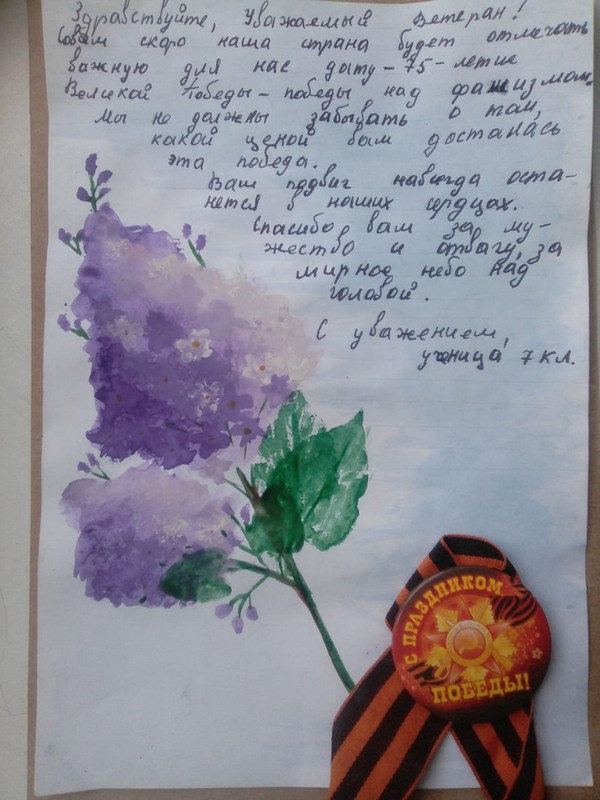 Здравствуйте, Уважаемый Ветеран!
Совсем скоро наша страна будет отмечать
важную для нас дату - 75-летие
Великой Победы - победы над фашизмом.
Мы не должны забывать о том,
какой ценой вам досталась
эта победа.
Ваш подвиг навсегда оста-
нется в наших сердцах.
Спасибо вам за му-
жество и отвагу, за
мирное небо над
головой.
С уважением,
ученица 7 кл.
С ПРАЗДНИКОМ
ПОБЕДЫ!